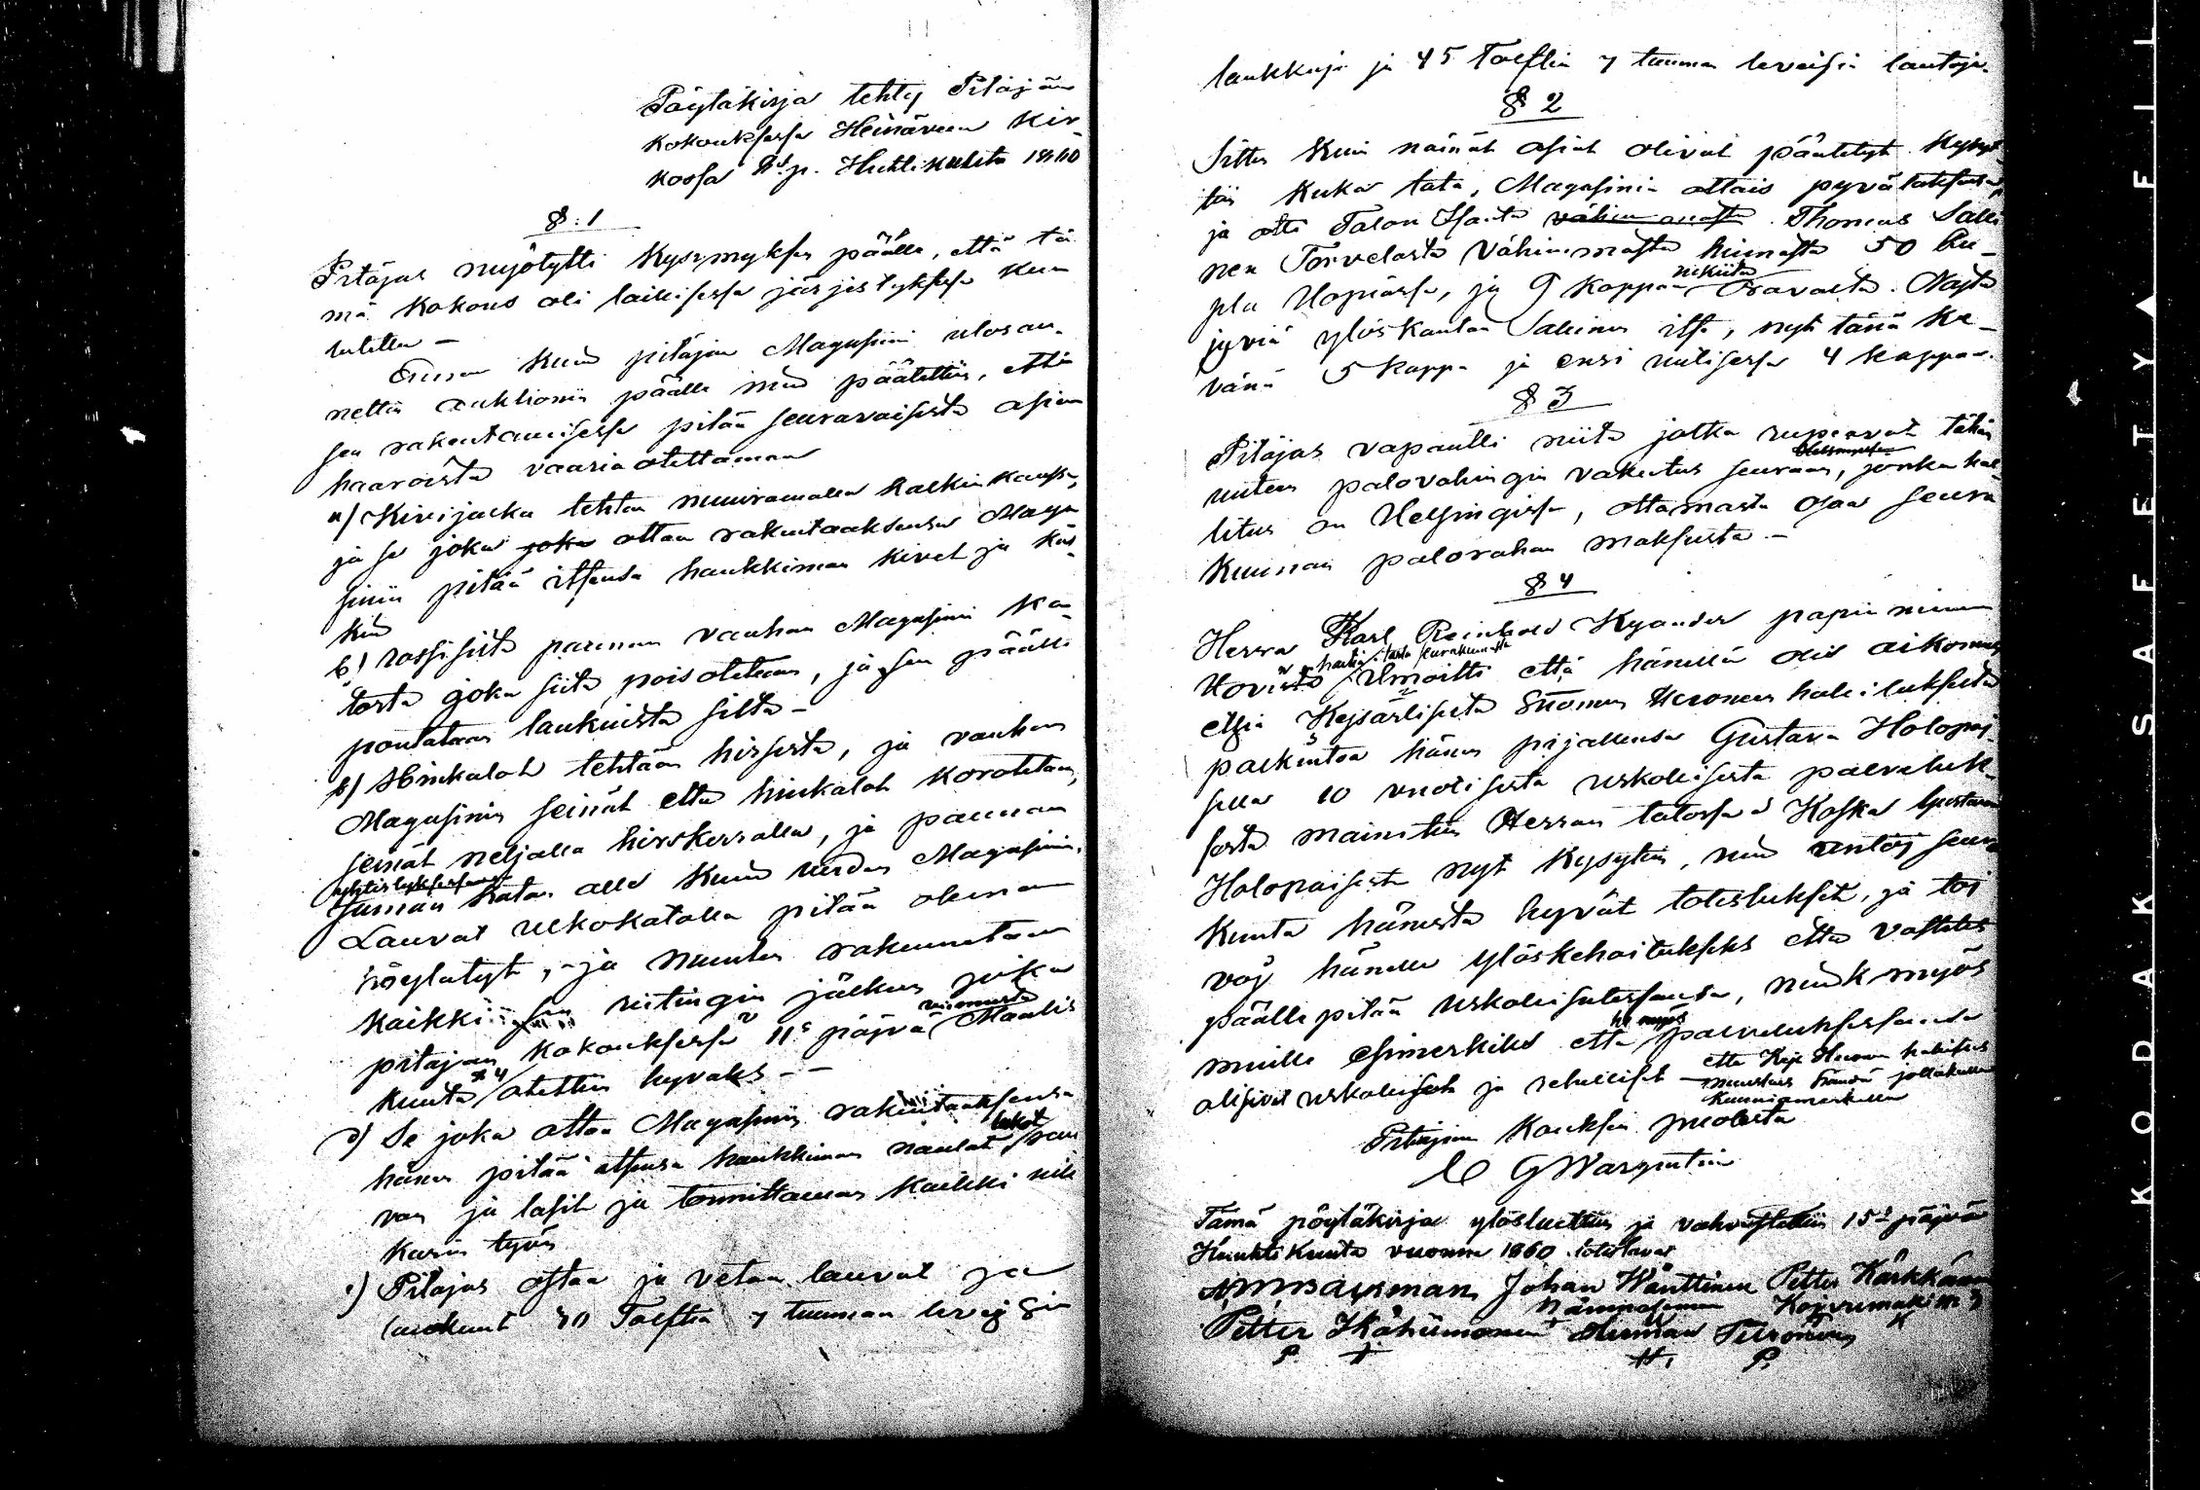 Pöytäkirja tehty Pitäjän
kokouksesa Heinäveen Kir-
kossa p. Huhtikuuta 1860
§ 1
Pitäjäs myötytti kysymyksen päälle, että tä
mä kokous oli laillisessa järjestyksessä kuu
lutettu –
Ennen kuin pitäjän Magasini ulosan-
nettin auktionin päälle niin päätettin, että
sen rakentamisessa pitää seuravaisista asian
haaroista vaaria otettaman
a) Kivijalka tehtän muuraamalla kalkin kanssa,
ja se joka joka ottaa rakentaaksensa Maga
sinin pitää itsensä hankkiman kivet ja kal-
kin
b) rossisilta pannan vanhan Magasini ka-
tosta joka siitä pois otetaan, ja sen päälle
pontataan laukuista silta –
c) Hinkalot tehtään hirsistä, ja vanhan
Magasinin seinät että hinkalot korotetaan,
seinät neljällä hirskerralla, ja pannan
yhtistyksesänsä
saman katon alle kuin uuden Magasinin.
Lauvat ulkokatolla pitää oleman
höylätyt, ja muuten rakennetaan
kaikki sen riitingin jälken joka
pitäjän kokouksessa 11s päjvä viimmesta Maalis
kuuta § 4 otettin hyväks – –
d) Se joka ottaa Magasinin rakentaaksensa
hänen pitää itsensä hankkiman naulat lukot rau
van ja lasit ja toimittaman kaikki nik
karin työn
e) Pitäjäs ostaa ja vetaa lauvat ja
laukuut 30 Tolftia 7 tuuman levejsiä
laukkuja ja 45 Tolftia 7 tuuman leveisiä lautoja.
§ 2
Sitte kuin nämät asiat olivat päätetyt kysyt
tiin kuka tätä Magasinia ottais tehdäksensä,
ja otti Talon Isäntä vähimmästä Thomas Salli
nen Torvelasta vähimmästä hinnasta 50 Ru-
pla Hopiassa, ja 9 kappaa nikuita Osravaita. Näjtä
jyviä ylöskantaa Sallinen itse, nyt tänä ke-
vänä 5 kappa ja ensi uutisessa 4 kappaa.
§ 3
Pitäjäs vapautti niitä jotka rupeavat tähän
uuten palovahingin vakutus seuraan, jonka hal
litus on Helsingissä, ottamasta osaa seura
kunnan palorahan maksusta –
§ 4
Herra Karl Reinhold Kyander papin nimen
Kovisto tästä seurakunnasta Ilmoitti että hänellä olis aikomus
etsiä Kejsärliseltä Suomen Huonen hallitukselta
palkintoa hänen pijallensa Gustava Holopaj
sella 10 vuotisesta uskollisesta palveluk-
sesta mainitun Herran talossa. Koska Gustava
Holopaisesta nyt kysytin, niin antoj seura
kunta hänestä hyvät totistukset, ja toi
voj hänelle ylöskehoitukseks että vasteles
päälle pitää uskollisudessansa, niin k myös
muille esimerkiks että he myös palveluksessansa
olisivat uskolliset ja rehelliset että Kejs Huonen hallitus
muistais händä jollakulla
kunniamerkillä
Pitäjän Kouksen puolesta
C G Wargentin
Tämä pöytäkirja ylösluettin ja vahvistettin 15d päjvä
Huhtikuuta vuonna 1860 totistavat
Johan Wänttinen Petter Kärkkäinen
Petter Kähimonen Herman Petronius
P. H. P.